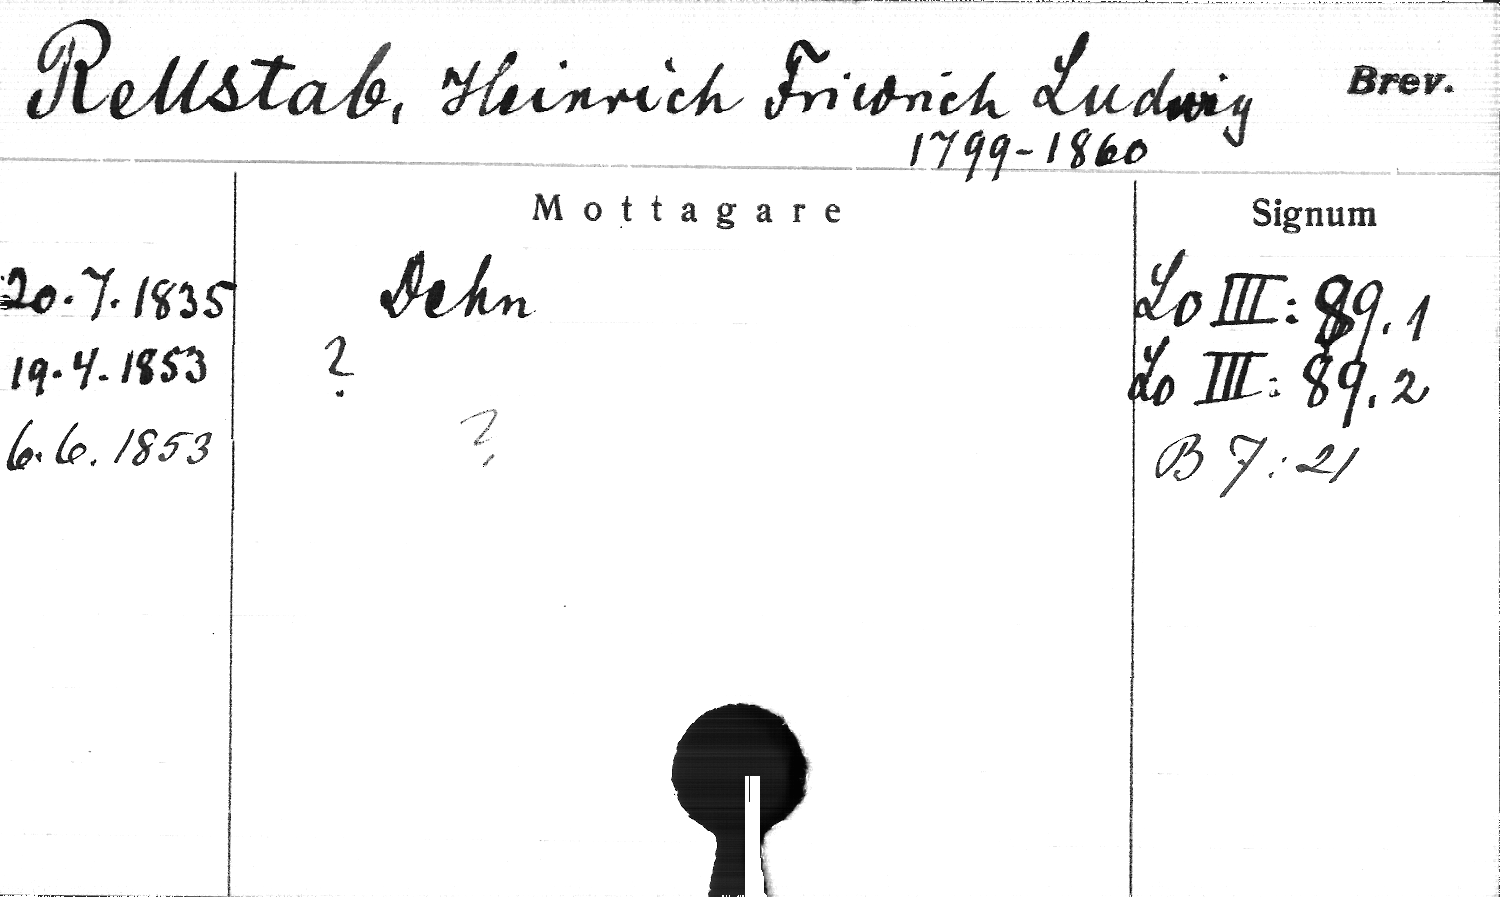 Rellstab, Heinrich Friedrich Ludwig Brev.
1799-1860
Mottagare Signum
20.7.1835 Dehn Lo III: 89.1
19.4.1853 ? Lo III: 89.2
6.6.1853 ? B 7:21